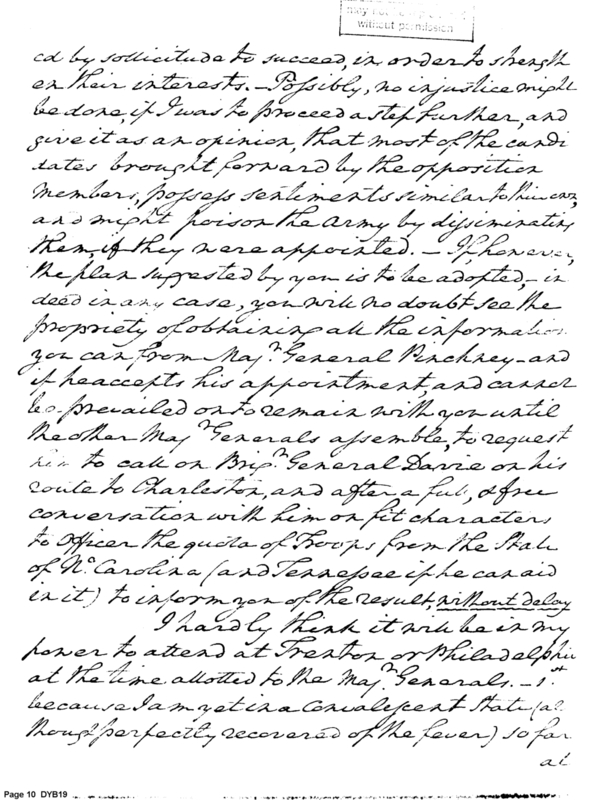 may not
without permission
ed by sollicitude to succeed, in order to strength
en their interests. — Possibly, no injustice might
be done, if I was to proceed a step further, and
give it as an opinion, that most of the candi
dates brought forward by the opposition
members, possess sentiments similar to their own,
and might poison the Army by disseminating
them, if they were appointed. — If however,
the plan suggested by you is to be adopted, — in
deed in any case, you will no doubt see the
propriety of obtaining all the information
you can from Majr. General Pinckney — and
if he accepts his appointment, and cannot
be prevailed on to remain with you until
the other Majr. Generals assemble, to request
him to call on Brigr. General Davie on his
route to Charleston, and after a full, & free
conversation with him on fit characters
to Officer the quota of Troops from the State
of No. Carolina (and Tennessee if he can aid
in it) to inform you of the result, without delay
I hardly think it will be in my
power to attend at Trenton or Philadelphia
at the time allotted to the Majr. Generals. — 1st.
because I am yet in a Convalescent State (al
though perfectly recovered of the fever) so far
as
Page 10 DYB19